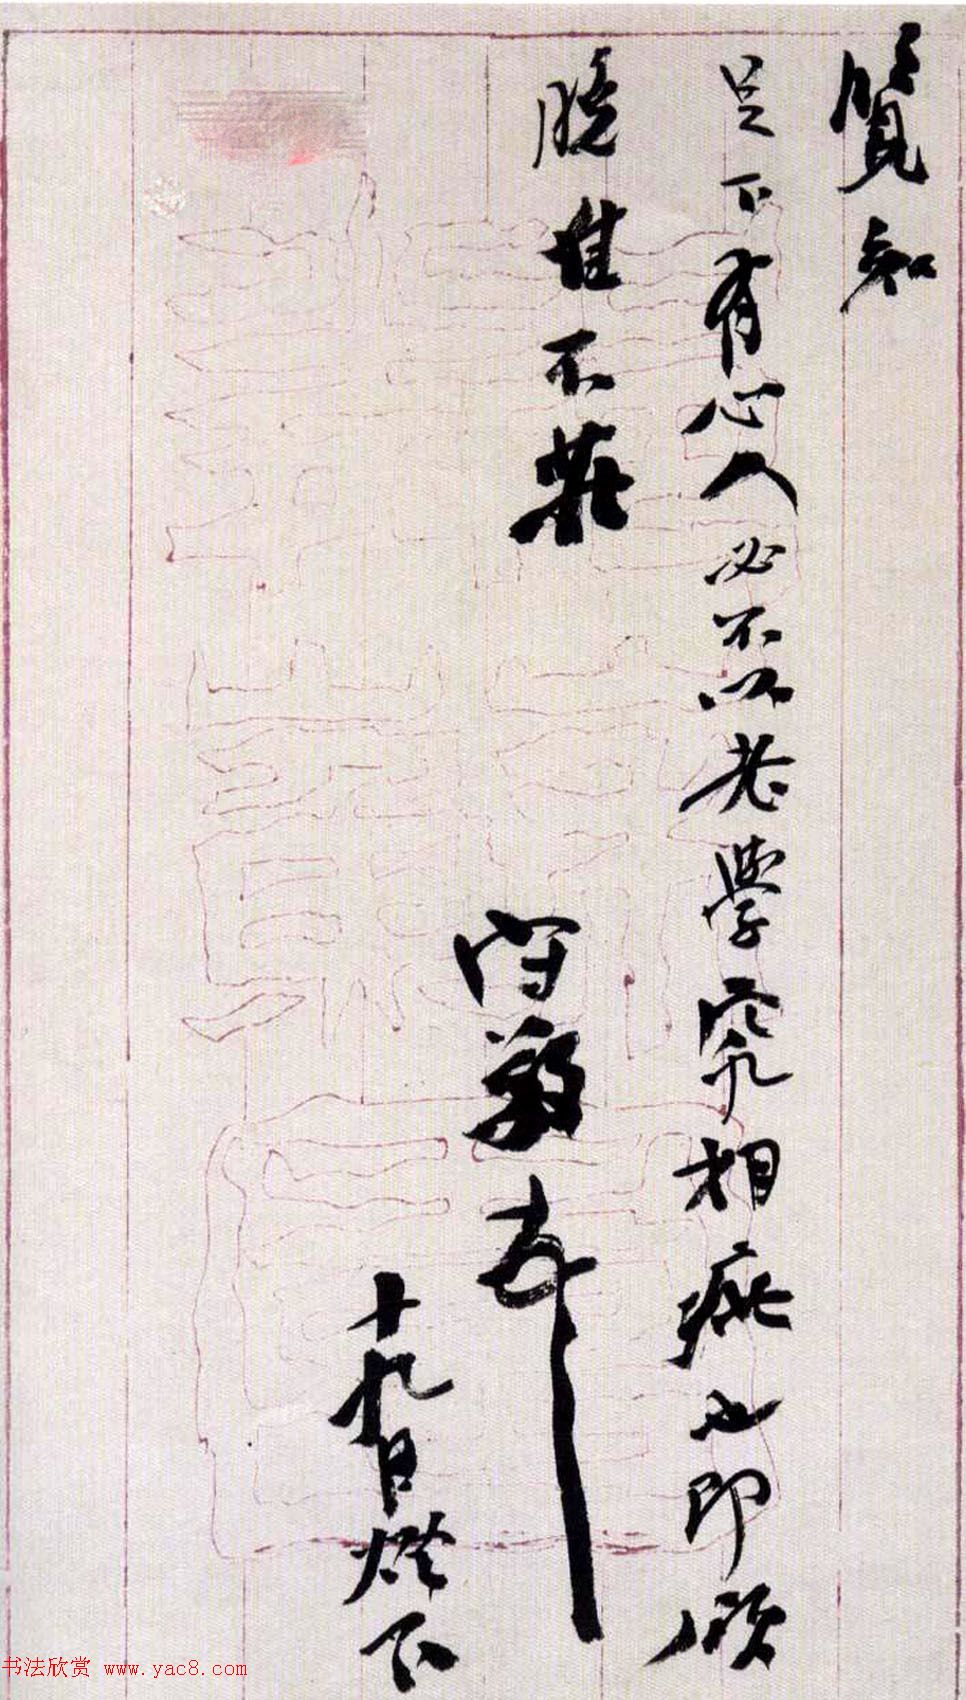 覽知
足下有心人必不以老學究相疵也即頌
晚佳不莊
守敬
十九日燈下
书法欣赏 www.yac8.com